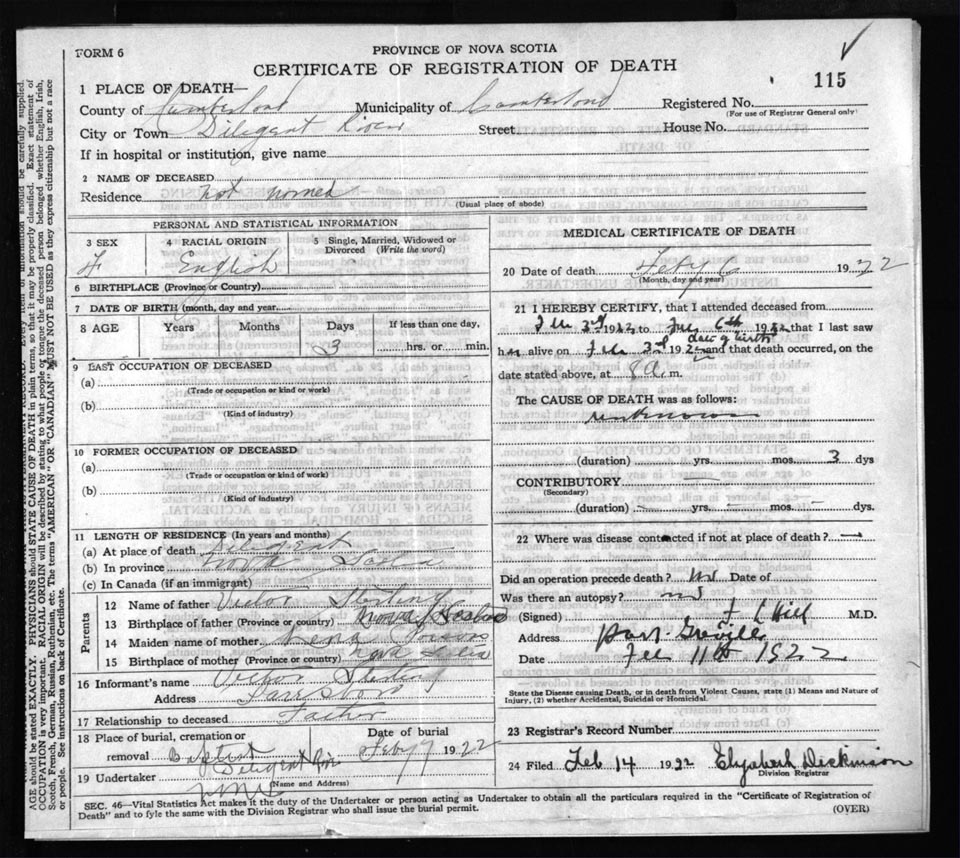 FORM 6
PROVINCE OF NOVA SCOTIA
CERTIFICATE OF REGISTRATION OF DEATH
115
1 PLACE OF DEATH—
County of Cumberland Municipality of Cumberland Registered No.
(For use of Registrar General only)
City or Town Diligent River Street House No.
If in hospital or institution, give name
2 NAME OF DECEASED
Residence not named
(Usual place of abode)
PERSONAL AND STATISTICAL INFORMATION
3 SEX 4 RACIAL ORIGIN 5 Single, Married, Widowed or Divorced (Write the word)
F English
6 BIRTHPLACE (Province or Country)
7 DATE OF BIRTH (month, day and year)
8 AGE Years Months Days If less than one day,
3 hrs. or min.
9 LAST OCCUPATION OF DECEASED
(a)
(Trade or occupation or kind or work)
(b)
(Kind of industry)
10 FORMER OCCUPATION OF DECEASED
(a)
(Trade or occupation or kind of work)
(b)
(Kind of industry)
11 LENGTH OF RESIDENCE (In years and months)
(a) At place of death Diligent
(b) In province Nova Scotia
(c) In Canada (if an immigrant)
Parents
12 Name of father Victor Sterling
13 Birthplace of father (Province or country) Nova Scotia
14 Maiden name of mother
15 Birthplace of mother (Province or country) Nova Scotia
16 Informant's name Victor Sterling
Address Parrsboro
17 Relationship to deceased Father
18 Place of burial, cremation or removal Baptist Diligent Riv
Date of burial Feby 9 1922
19 Undertaker
(Name and Address)
MEDICAL CERTIFICATE OF DEATH
20 Date of death Feby 6 1922
(Month, day and year)
21 I HEREBY CERTIFY, that I attended deceased from
Feb 3rd 1922 to Feb 6th 1922 that I last saw
her alive on Feb 3rd 1922 date of birth and that death occurred, on the
date stated above, at 8 a. m.
The CAUSE OF DEATH was as follows:
unknown
(duration) yrs. mos. 3 dys
CONTRIBUTORY
(Secondary)
(duration) — yrs. — mos. — dys.
22 Where was disease contracted if not at place of death? —
Did an operation precede death? no Date of
Was there an autopsy? no
(Signed) F L Hill M.D.
Address Port Greville
Date Feb 11th 1922
State the Disease causing Death, or in death from Violent Causes, state (1) Means and Nature of
Injury, (2) whether Accidental, Suicidal or Homicidal.
23 Registrar's Record Number
24 Filed Feb 14 1922 Elizabeth Dickinson
Division Registrar
SEC. 46—Vital Statistics Act makes it the duty of the Undertaker or person acting as Undertaker to obtain all the particulars required in the "Certificate of Registration of
Death" and to fyle the same with the Division Registrar who shall issue the burial permit.
(OVER)
AGE should be stated EXACTLY. PHYSICIANS should STATE CAUSE OF DEATH in plain terms, so that it may be properly classified. Exact statement of
OCCUPATION is very important. RACIAL ORIGIN will be described by stating to what people or tongue the deceased person belonged whether English, Irish,
Scotch, French, German, Russian, Ruthenian, etc. The terms "AMERICAN" OR "CANADIAN" MUST NOT BE USED as they express citizenship but not a race
or people. See instructions on back of Certificate.